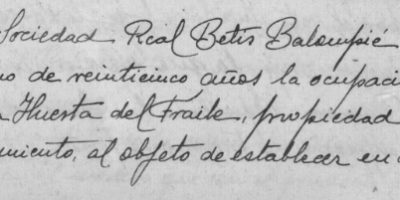 Sociedad Real Betis Balompié
no de veinticinco años la ocupaci
Huerta del Fraile, propiedad
miento, al objeto de establecer en